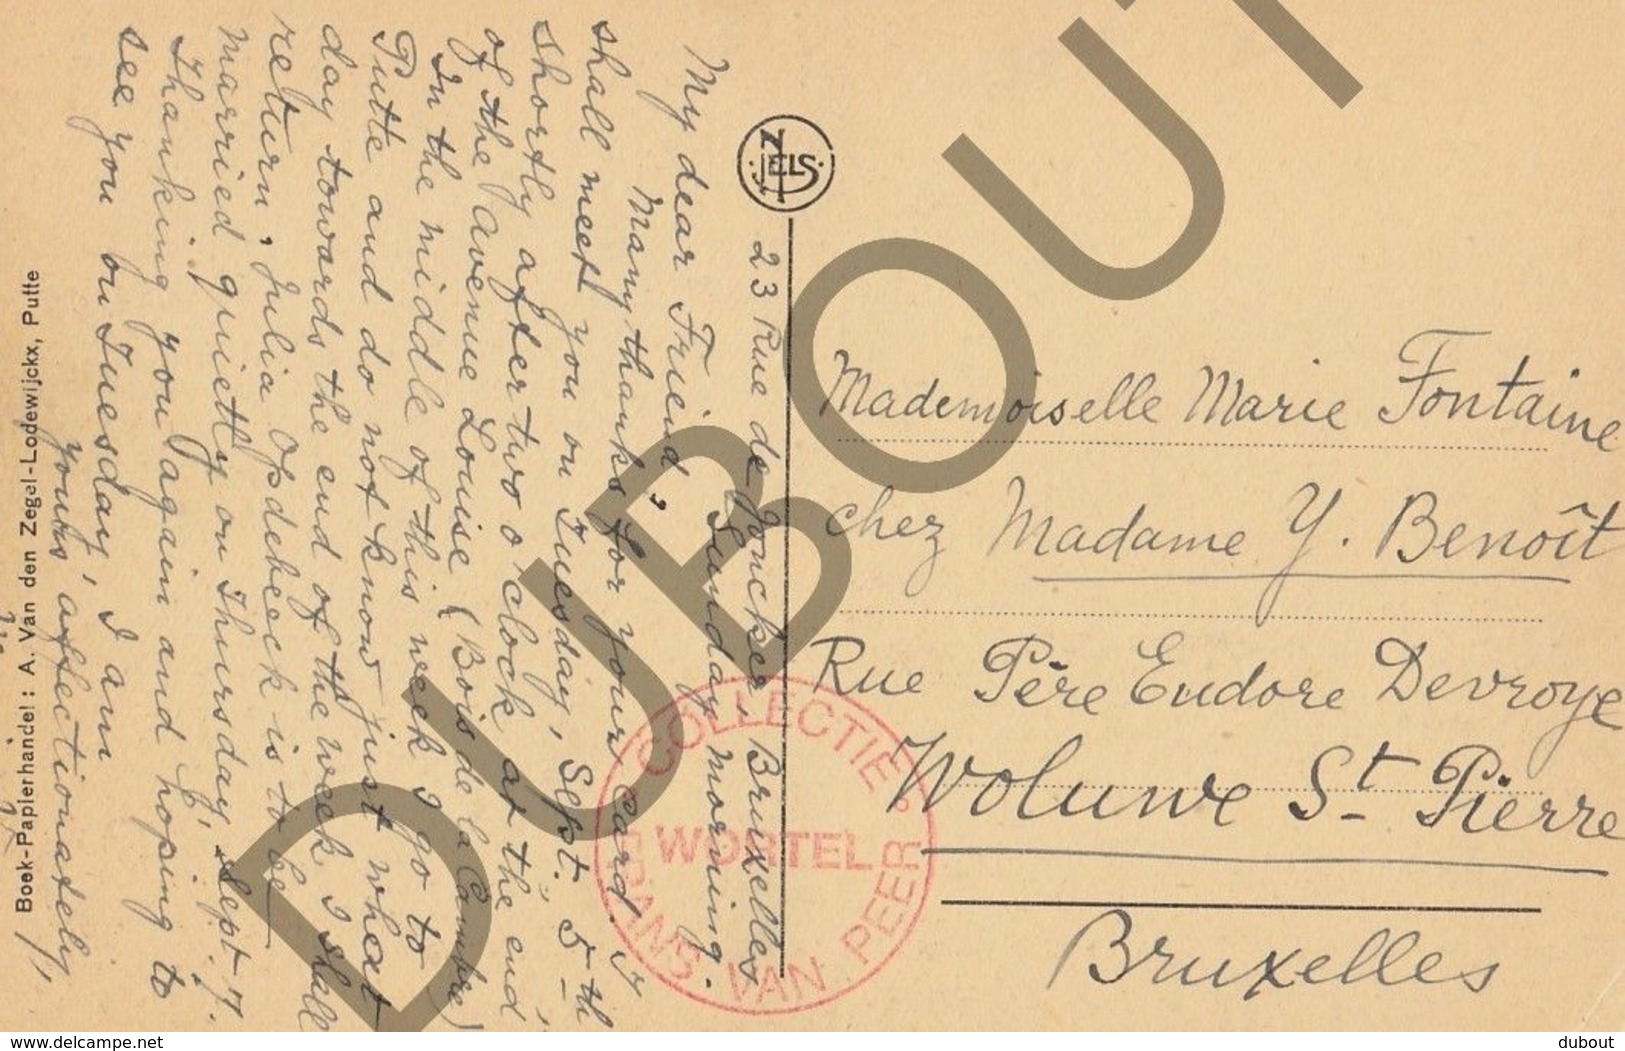 23 Rue de Joncker, Bruxelles
Sunday morning.
My dear Friend,
Many thanks for your card. I
shall meet you on Tuesday, Sept. 5th
shortly after two o'clock at the end
of the Avenue Louise (Bois de la Cambre)
In the middle of this week I go to
Putte and do not know just what
day towards the end of the week I shall
return. Julia Opdebeeck is to be
married quietly on Thursday, Sept 7.
Thanking you again and hoping to
see you on Tuesday, I am
Yours affectionately,
Boek-Papierhandel : A. Van den Zegel-Lodewijckx, Putte
NELS
Mademoiselle Marie Fontaine
chez Madame Y. Benoît
Rue Père Eudore Devroye
Woluwe St Pierre
Bruxelles
COLLECTIE
WORTEL
FRANS VAN PEER
DUBOUT
www.delcampe.net
dubout